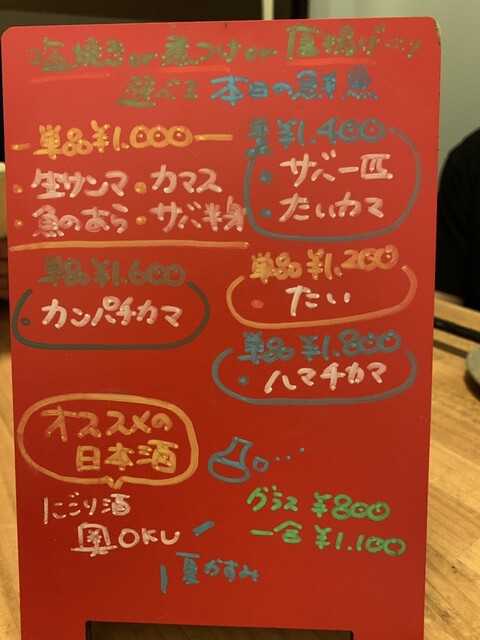 塩焼き or 煮つけ or 唐揚げより
選べる 本日の鮮魚
単品¥1.000
・生サンマ ・カマス
・魚のあら ・サバ半身
単品¥1.400
・サバ一匹
・たいカマ
単品¥1.600
・カンパチカマ
単品¥1.200
・たい
単品¥1.800
・ハマチカマ
オススメの
日本酒
にごり酒
奥OKU
夏かすみ
グラス ¥800
一合 ¥1.100